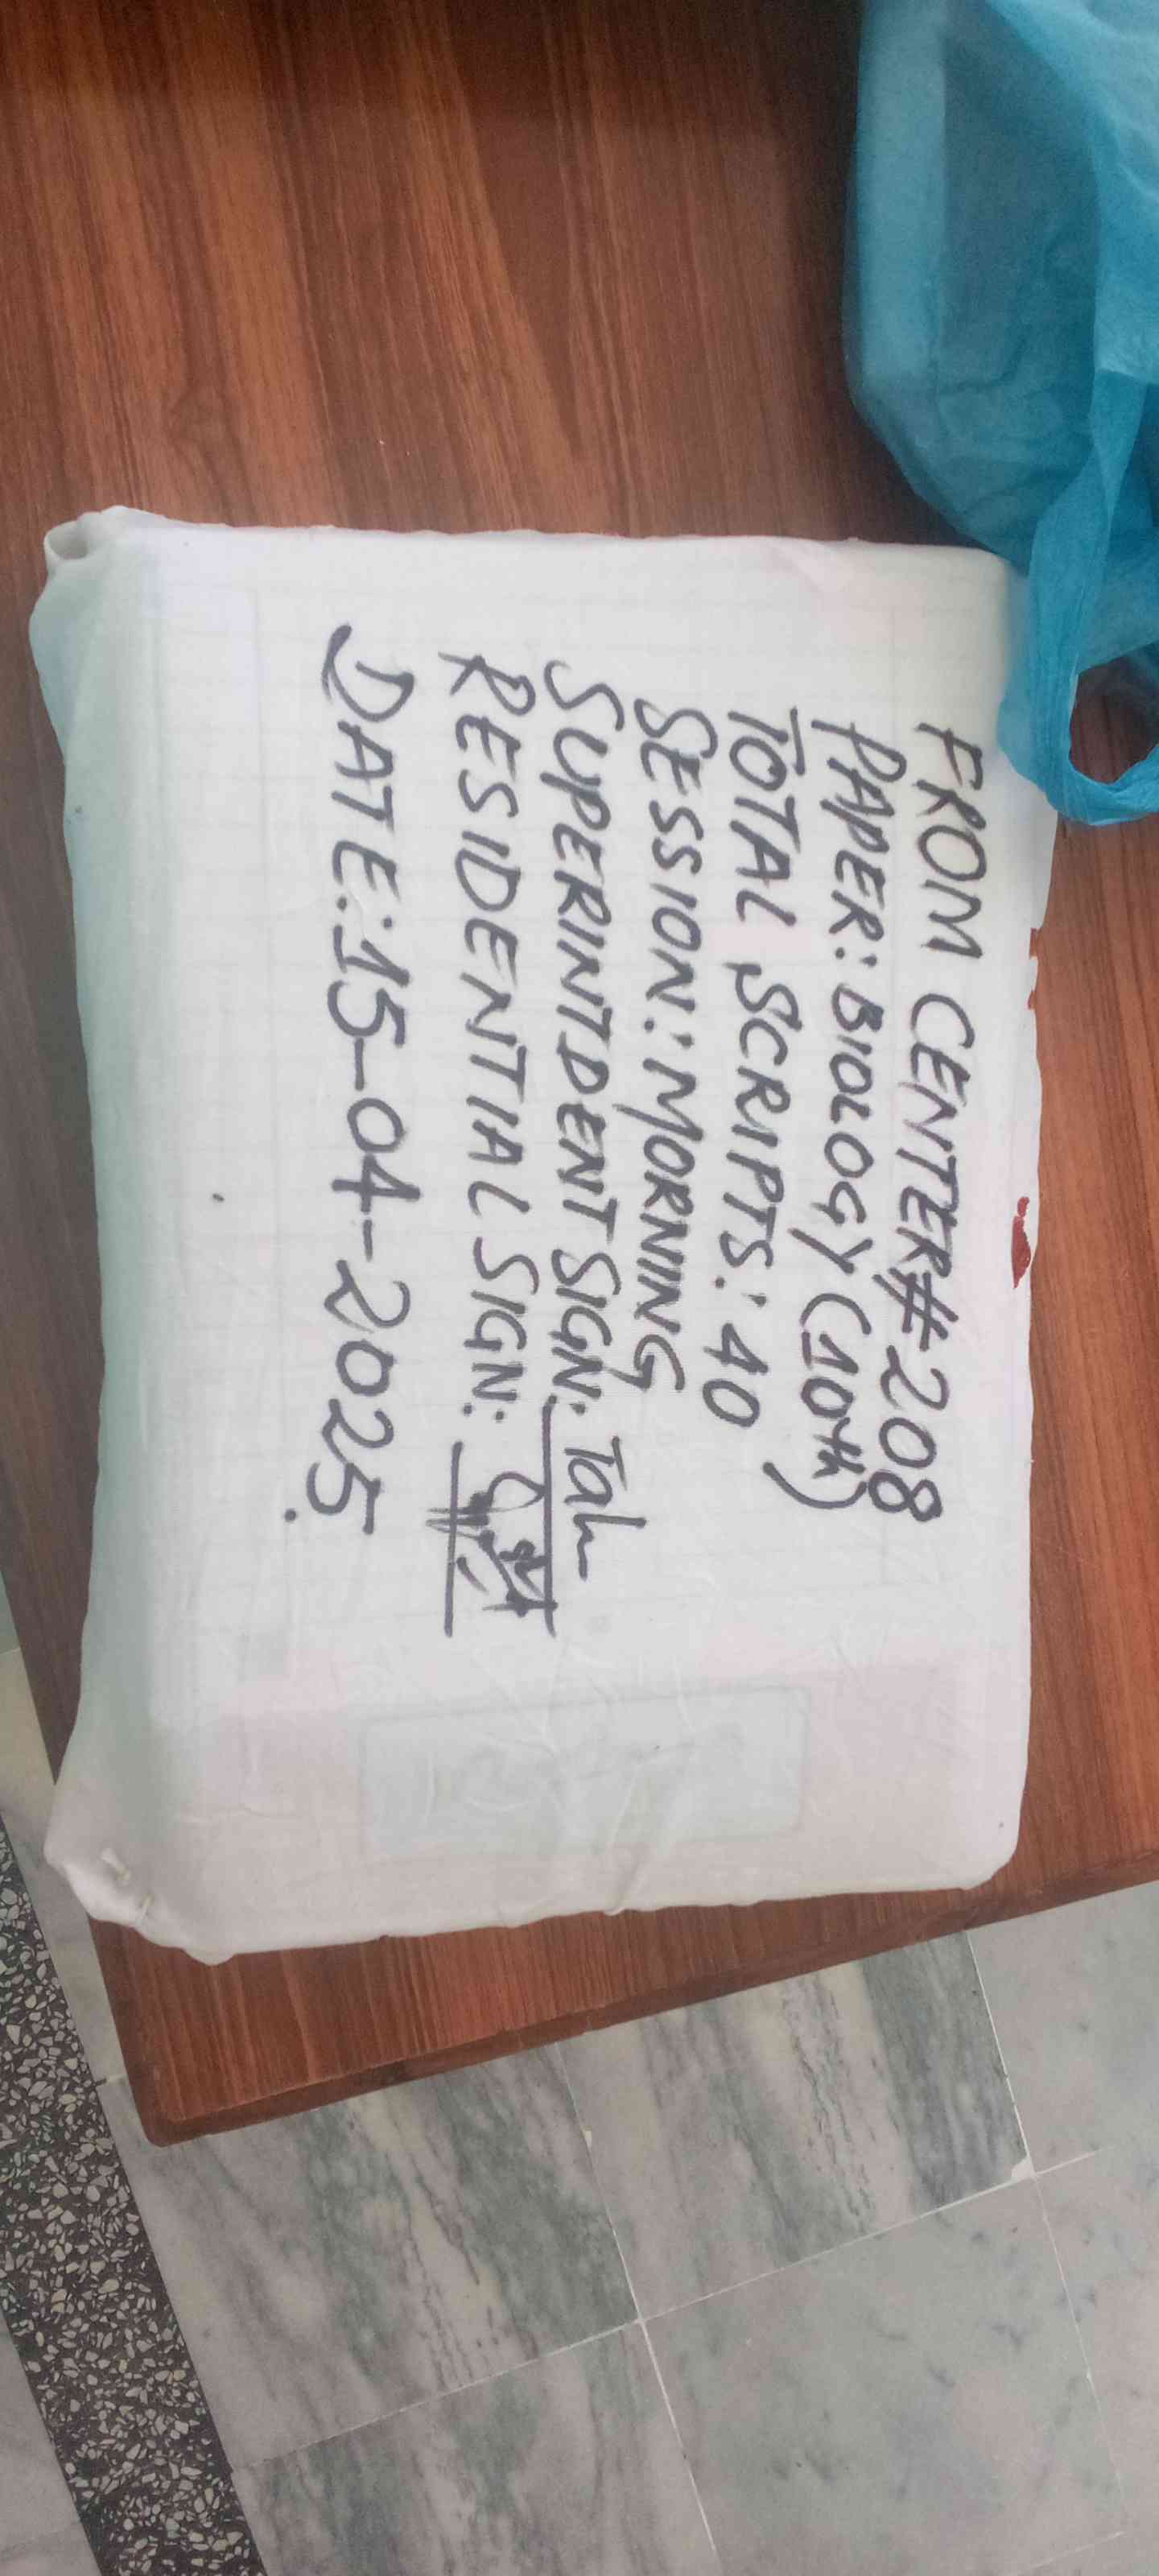 FROM CENTER# 208
PAPER: BIOLOGY (10th)
TOTAL SCRIPTS: 40
SESSION: MORNING
SUPERINTDENT SIGN:
RESIDENTIAL SIGN:
DATE: 15-04-2025